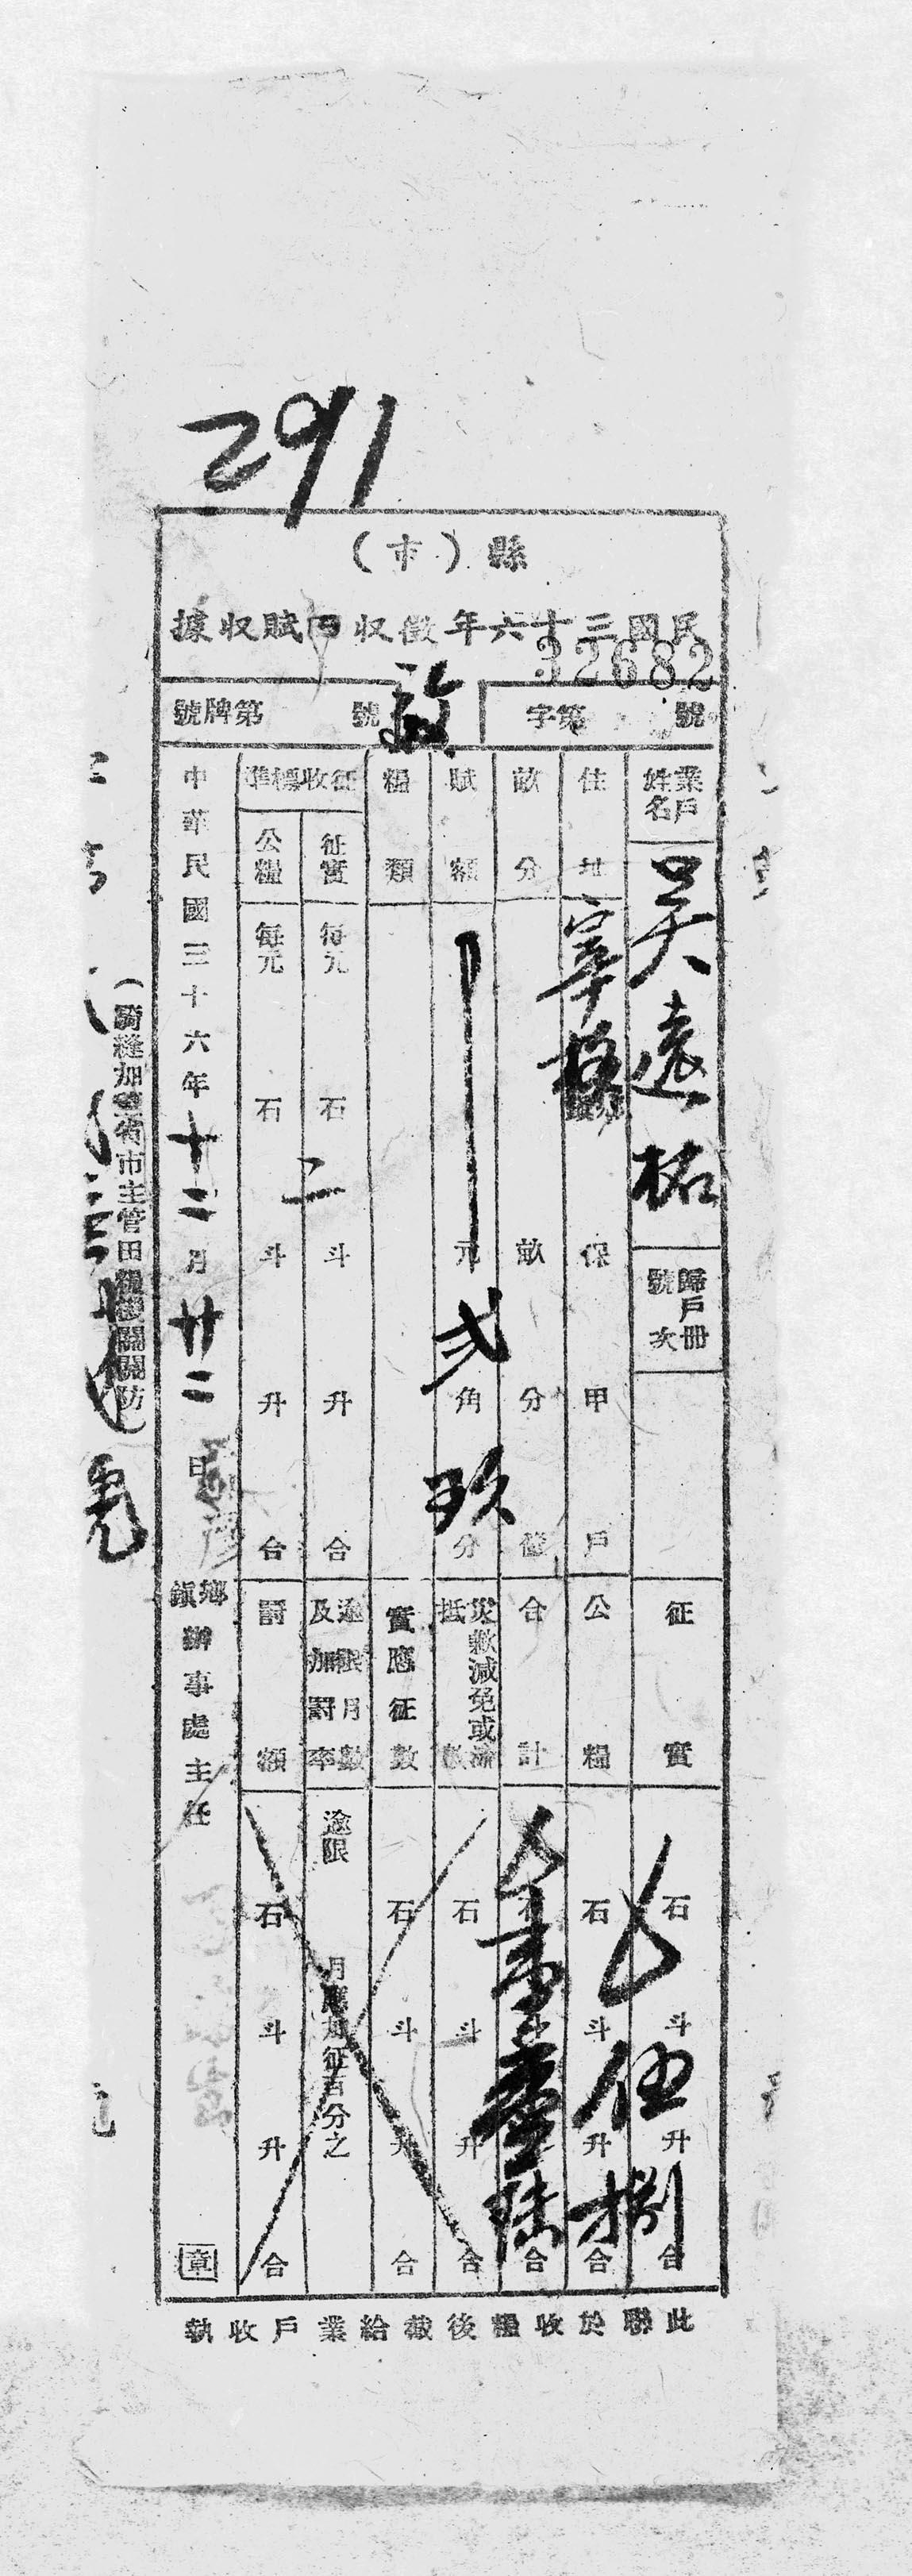 291
縣（市）
民國三十六年徵收田賦收據
32682
字第 號
號牌第 號
業戶姓名
吳遠祐
歸戶冊號次
征實
石 斗 升 合
住址
保 甲 戶
公糧
石 伍 斗 升 捌 合
畝分
畝 分 釐
合計
壹 陸 合
賦額
元 弍 角 玖 分
災歉減免或濟抵數
石 斗 升 合
糧類
實應征數
石 斗 升 合
征收標準
征實
每元 石 二 斗 升 合
逾限月數及加罰率
逾限 月應加征百分之
公糧
每元 石 斗 升 合
罰額
石 斗 升 合
中華民國三十六年十二月廿二日
鄉鎮辦事處主任
章
（騎縫加蓋省市主管田糧機關關防）
此聯於收糧後截給業戶收執